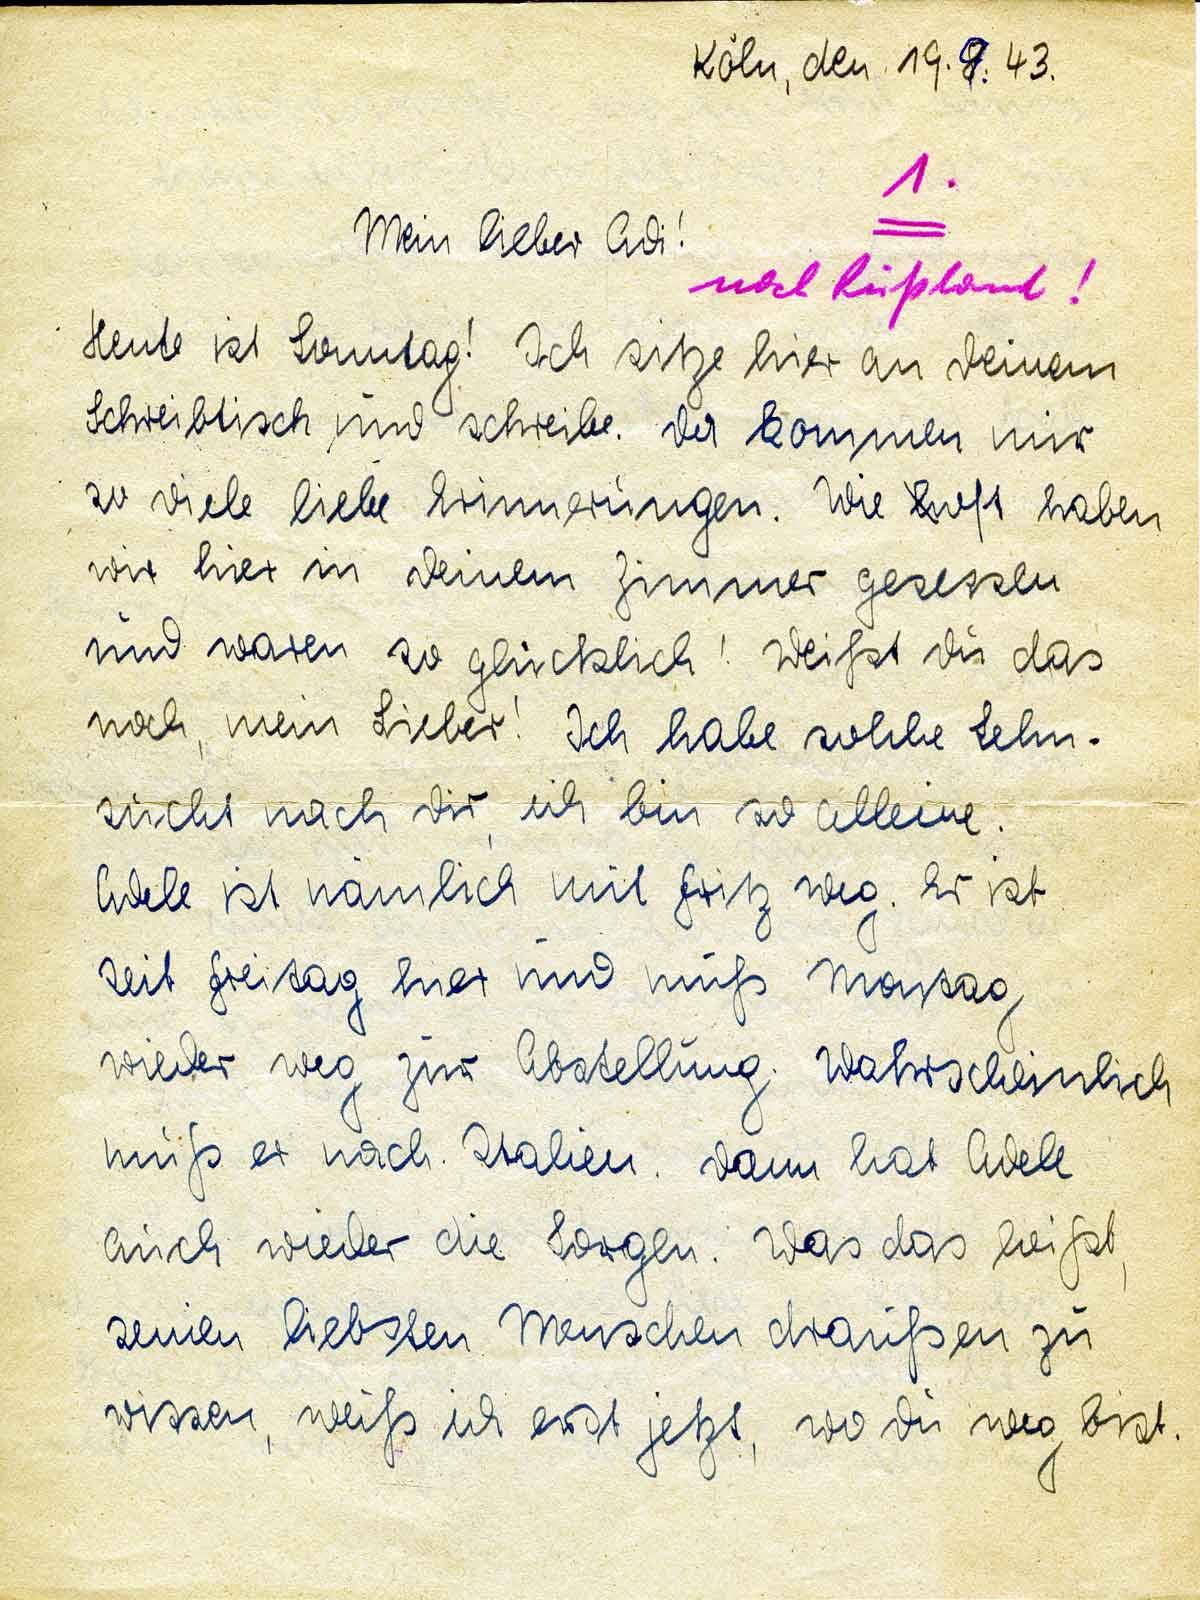 Köln, den 19.9.43.
1.
Mein lieber Adi!
nach Rußland!
Heute ist Sonntag! Ich sitze hier an Deinem
Schreibtisch und schreibe. Da kommen mir
so viele liebe Erinnerungen. Wie oft haben
wir hier in Deinem Zimmer gesessen
und waren so glücklich! Weißt Du das
noch, mein Lieber! Ich habe solche Sehn-
sucht nach Dir, ich bin so alleine.
Adele ist nämlich mit Fritz weg. Er ist
seit Freitag hier und muß Montag
wieder weg zur Abstellung. Wahrscheinlich
muß er nach Italien. Dann hat Adele
auch wieder die Sorgen. Was das heißt,
seinen liebsten Menschen draußen zu
wissen, weiß ich erst jetzt, wo Du weg bist.